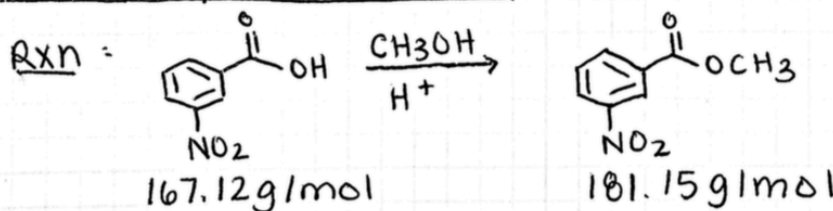 Rxn:
O
OH
NO2
167.12g/mol
CH3OH
H+
O
OCH3
NO2
181.15g/mol